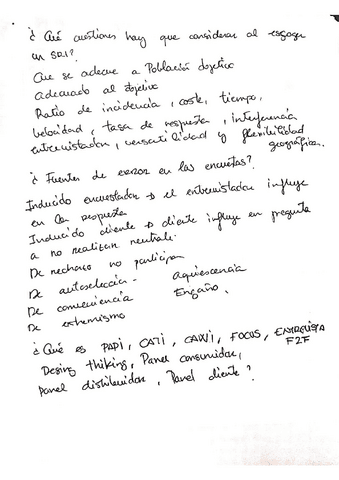 ¿ Qué cuestiones hay que considerar al escoger
un SRI?
Que se adecue a Población objetivo
Adecuado al objetivo
Ratio de incidencia, coste, tiempo,
velocidad, tasa de respuesta, interferencia
entrevistador, versatilidad y flexibilidad
geográfica.
¿ Fuentes de error en las encuestas?
Inducido encuestador → el entrevistador influye
en la respuesta
Inducido cliente → cliente influye en pregunta
a no realizar neutrale.
De rechazo no participan
De autoselección - Aquiescencia
De conveniencia Engaño,
De extremismo
¿ Qué es PAPI, CATI, CAWI, FOCUS, ENTREVISTA
F2F
Desing thiking, Panel consumidor,
Panel distribuidor, Panel cliente?